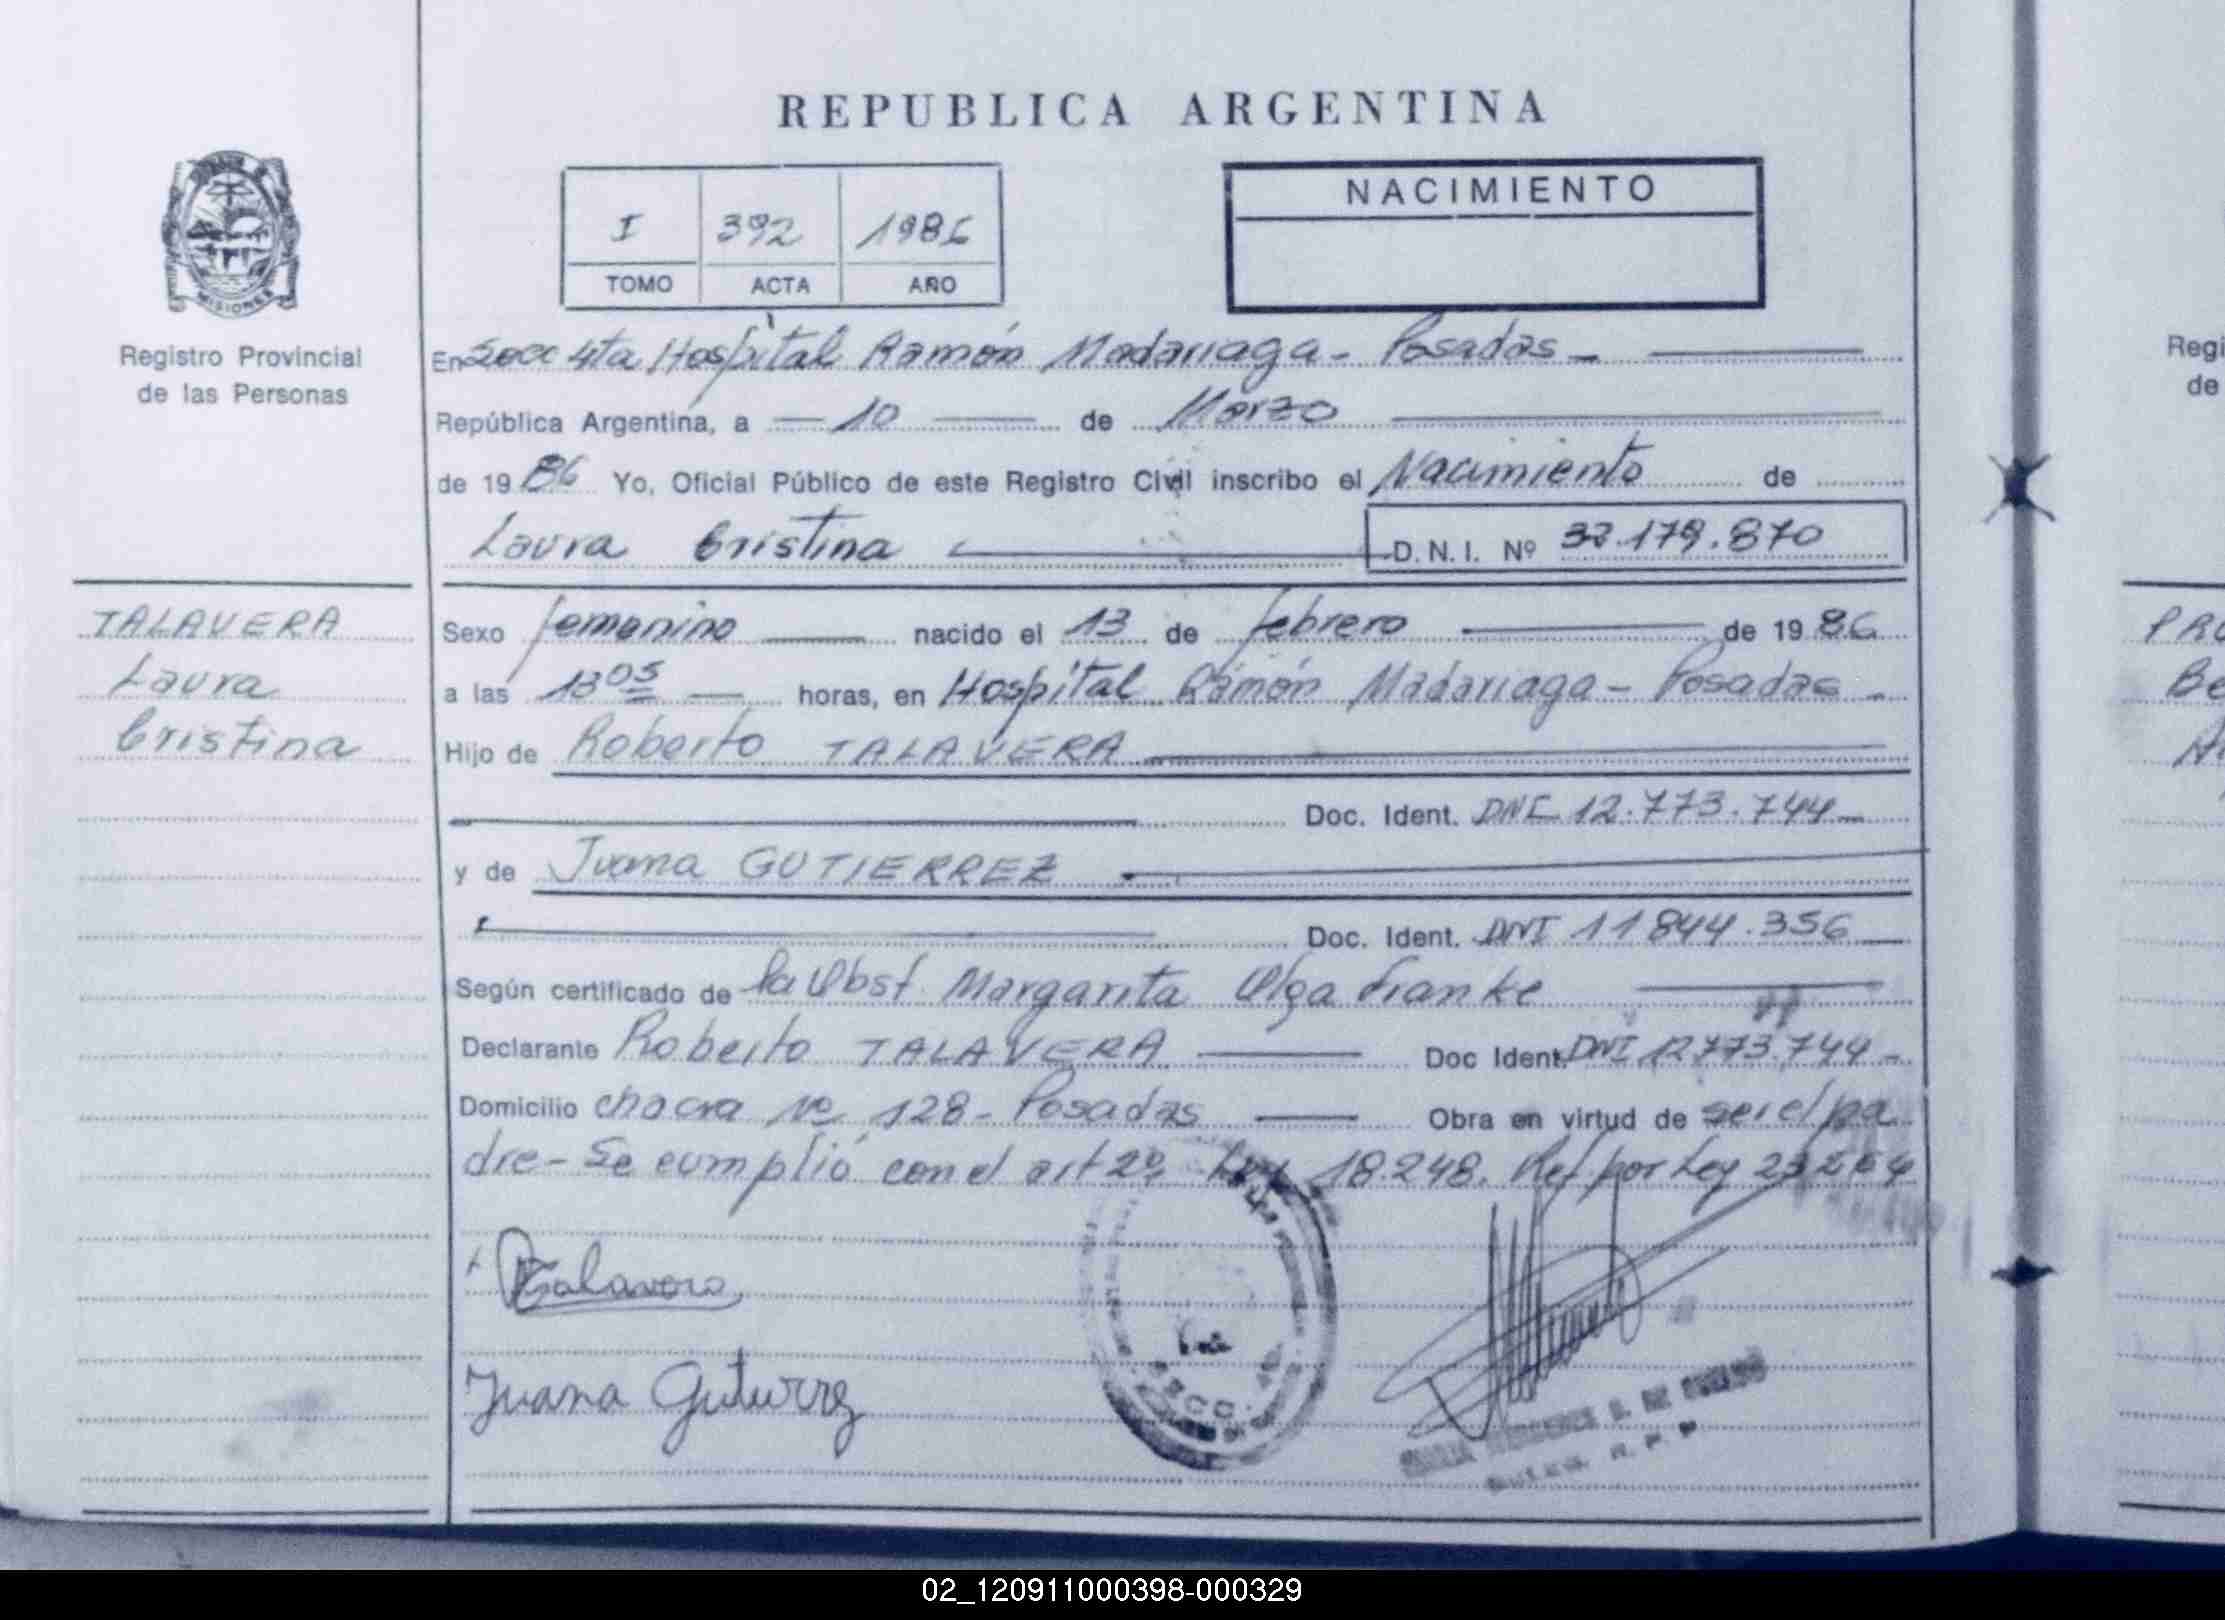 REPUBLICA ARGENTINA
MISIONES
Registro Provincial
de las Personas
I 392 1986
TOMO ACTA AÑO
NACIMIENTO
En Secc 4ta Hospital Ramón Madariaga - Posadas -
República Argentina, a - 10 - de Marzo
de 19 86 Yo, Oficial Público de este Registro Civil inscribo el Nacimiento de
Laura Cristina D.N.I. Nº 32.179.870
TALAVERA
Laura
Cristina
Sexo femenino nacido el 13 de febrero de 19 86
a las 13 05 horas, en Hospital Ramón Madariaga - Posadas -
Hijo de Roberto TALAVERA
Doc. Ident. DNI 12.773.744
y de Juana GUTIERREZ
Doc. Ident. DNI 11844.356
Según certificado de la Obst. Margarita Olga Franke
Declarante Roberto TALAVERA Doc Ident. DNI 12773.744 -
Domicilio chacra Nº 128 - Posadas Obra en virtud de ser el pa
dre - Se cumplió con el art 2º Ley 18.248. Ref por Ley
Talavera
Juana Gutierrez
SECC.
Regi
de
PRO
Be
02_120911000398-000329